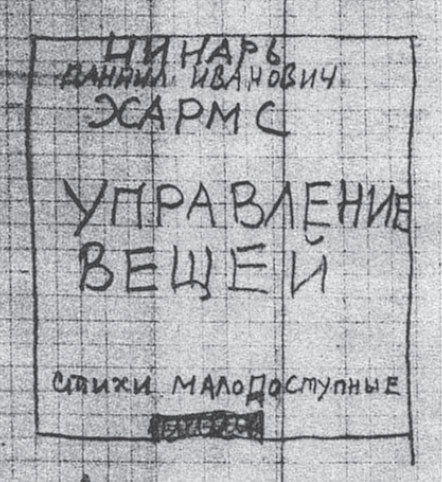 ЧИНАРЬ
ДАНИИЛ ИВАНОВИЧ
ХАРМС
УПРАВЛЕНИЕ
ВЕЩЕЙ
СТИХИ МАЛОДОСТУПНЫЕ